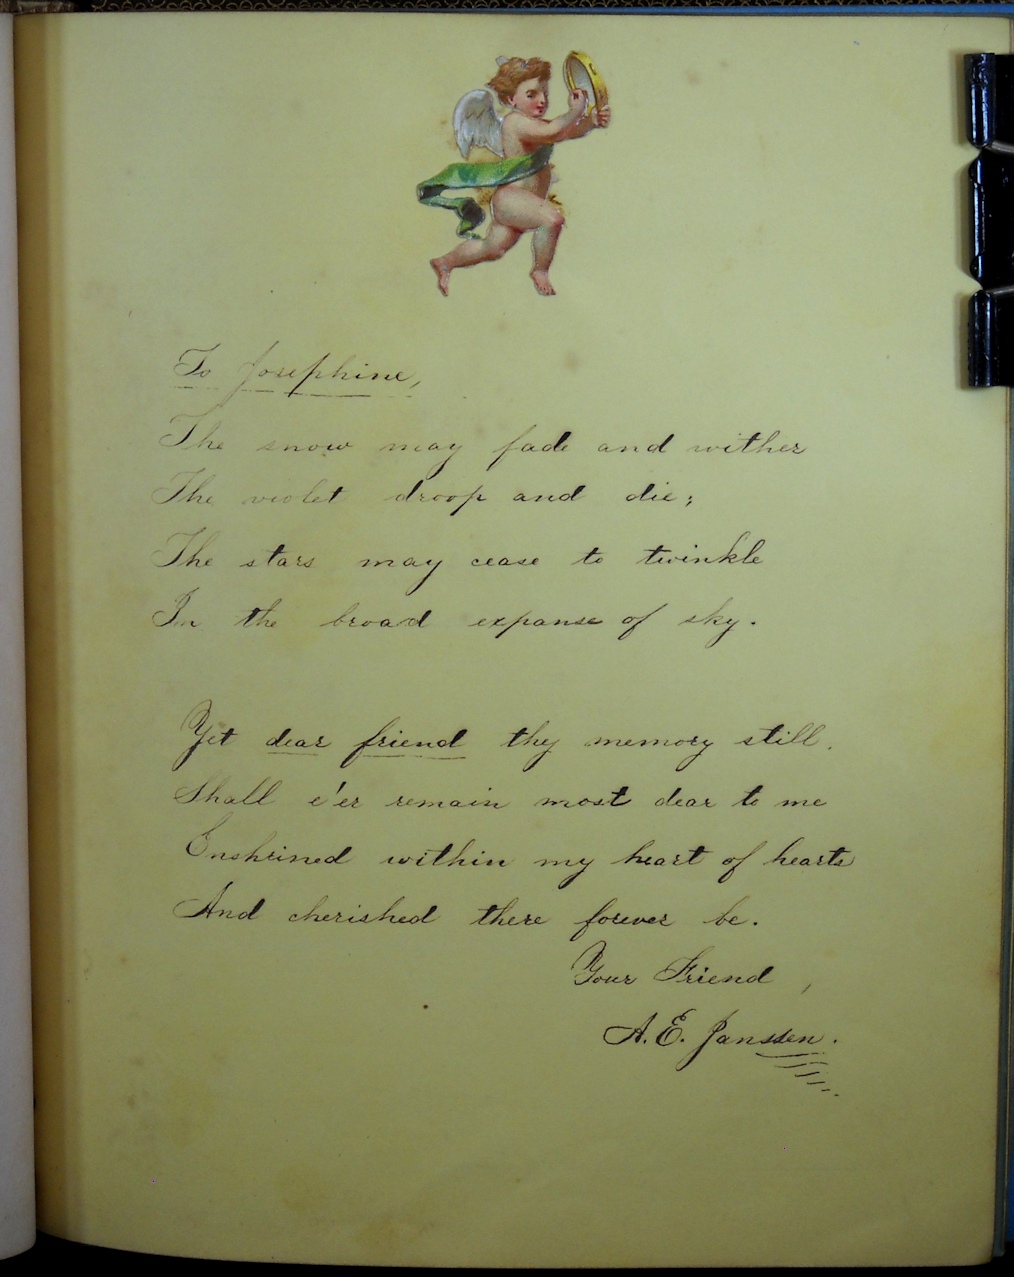 To Josephine,
The snow may fade and wither
The violet droop and die;
The stars may cease to twinkle
In the broad expanse of sky.
Yet dear friend thy memory still.
Shall e'er remain most dear to me
Enshrined within my heart of hearts
And cherished there forever be.
Your Friend,
A. E. Janssen.